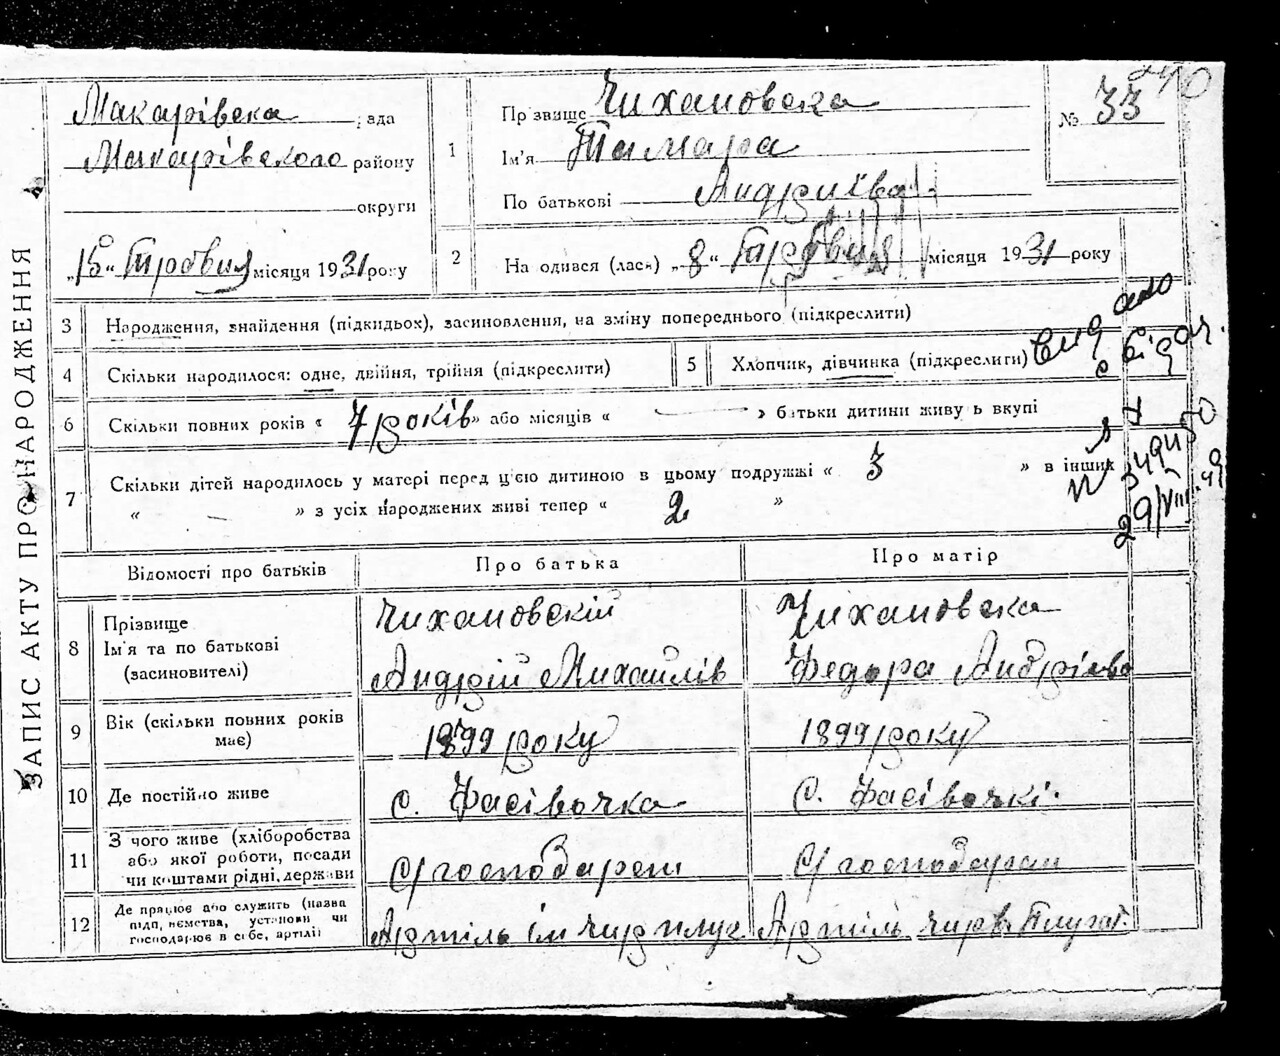 ЗАПИС АКТУ ПРО НАРОДЖЕННЯ
Макарівска зада
Макарівского району
округи
„15“ Травня місяця 1931 року
1
Прізвище Чихановска
Ім'я Тамара
По батькові Андріїва
№ 33
240
2
На одився (лась) „8“ Травня місяця 1931 року
3 Народження, знайдення (підкидьох), засиновлення, на зміну попереднього (підкреслити)
4 Скільки народилося: одне, двійня, трійня (підкреслити)
5 Хлопчик, дівчинка (підкреслити)
Видано
с відач.
6 Скільки повних років « 7 років » або місяців « — » батьки дитини живу ь вкупі
7 Скільки дітей народилось у матері перед ц'єю дитиною в цьому подружжі « 3 » в інших
« — » з усіх народжених живі тепер « 2 »
29/VIII.49
Відомості про батьків
Про батька
Про матір
8 Прізвище
Ім'я та по батькові
(засиновителі)
Чихановскій
Андрій Михайлів
Чихановска
Федора Андрііва
9 Вік (скільки повних років
має)
1899 року
1899 року
10 Де постійно живе
с. Фасівочка
с. Фасівочкі.
11 З чого живе (хліборобства
або якої роботи, посади
чи коштами рідні, держави
с/господарем
с/господарем
12 Де працює або служить (назва
підп, иємства, установи чи
господарює в себе, артілі)
Артіль ім Чир плуг
Артіль Чирв. Плугат.